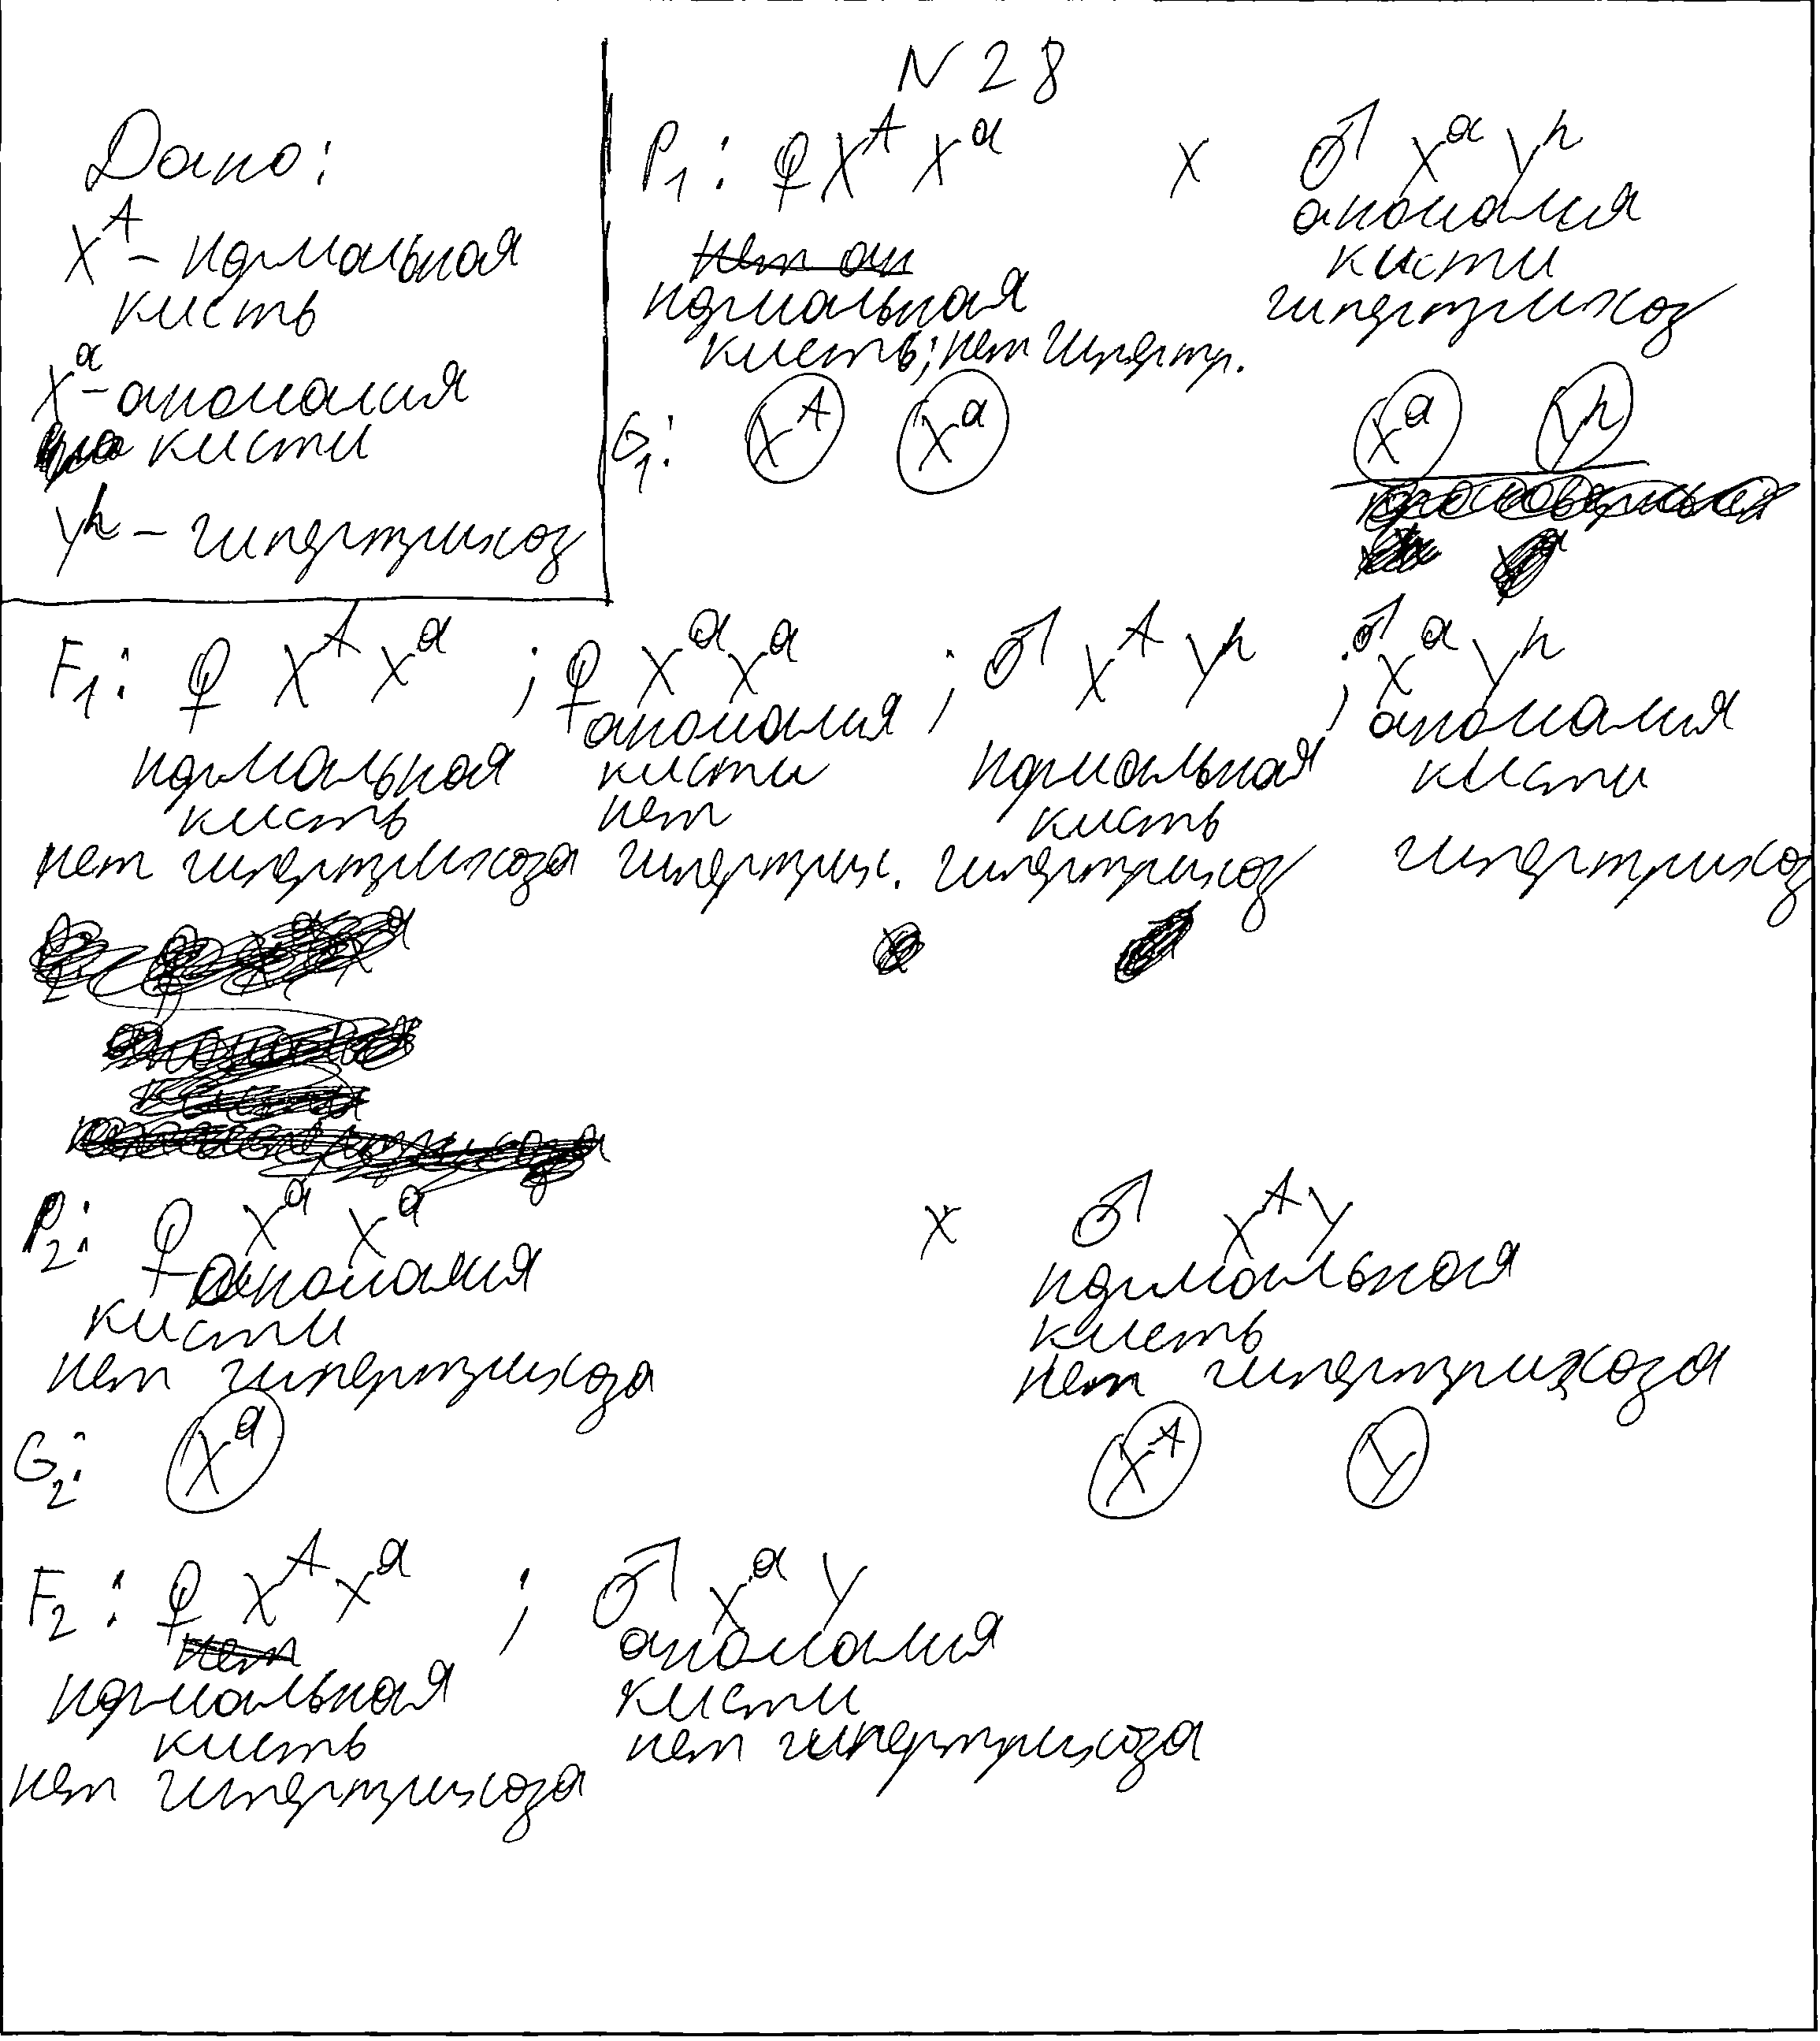 N 28
Дано:
X^A – нормальная
кисть
X^a – аномалия
кисти
Y^h – гипертрихоз
P₁: ♀ X^A X^a x ♂ X^a Y^h
нет ан
нормальная
кисть; нет гипертр.
аномалия
кисти
гипертрихоз
G₁: X^A X^a X^a Y^h
F₁: ♀ X^A X^a ; ♀ X^a X^a ; ♂ X^A Y^h ; ♂ X^a Y^h
нормальная
кисть
нет гипертрихоза
аномалия
кисти
нет
гипертрих.
нормальная
кисть
гипертрихоз
аномалия
кисти
гипертрихоз
P₂: ♀ X^a X^a x ♂ X^A Y
аномалия
кисти
нет гипертрихоза
нормальная
кисть
нет гипертрихоза
G₂: X^a X^A Y
F₂: ♀ X^A X^a ; ♂ X^a Y
нет
нормальная
кисть
нет гипертрихоза
аномалия
кисти
нет гипертрихоза